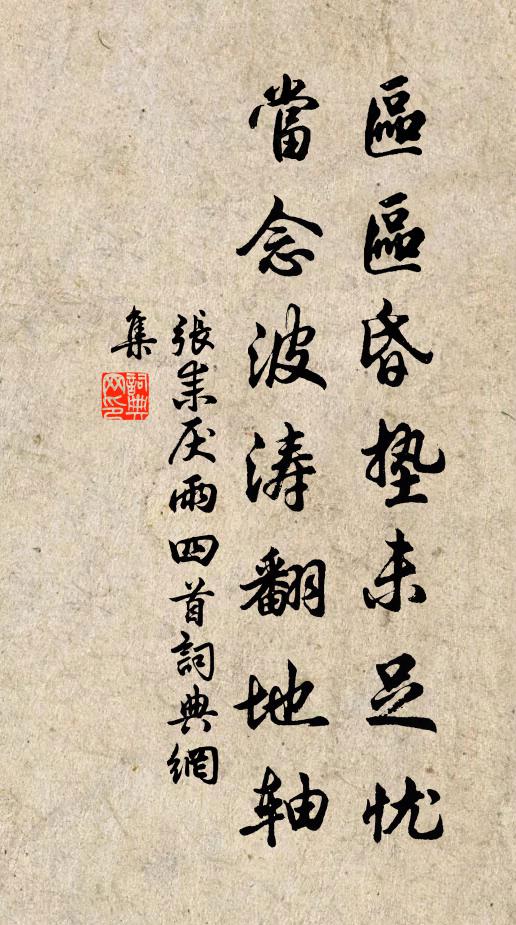 區區昏墊未足忧
當念波涛翻地轴
張耒厌雨四首詞典網
集
詞典網印